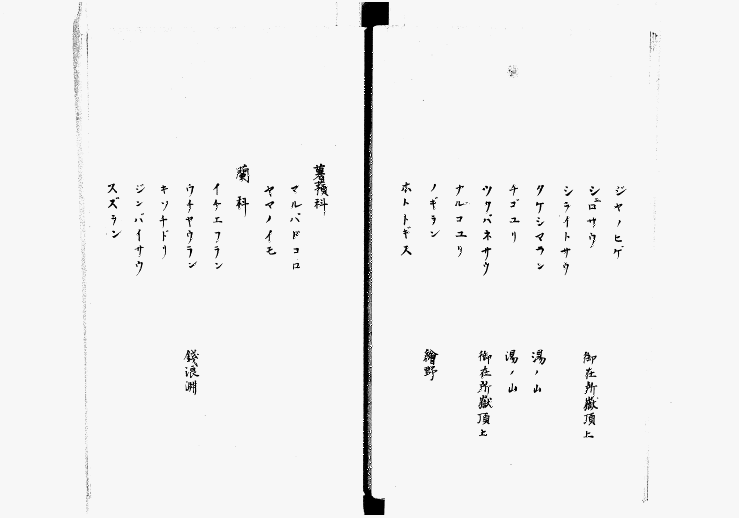 ジヤノヒゲ
シユロサウ 御在所嶽頂上
シライトサウ
タケシマラン 湯ノ山
チゴユリ 湯ノ山
ツクバネサウ 御在所嶽頂上
ナルコユリ
ノギラン 繪野
ホトトギス
薯蕷科
マルバドコロ
ヤマノイモ
蘭科
イチエフラン
ウチヤウラン 錢浪淵
キソチドリ
ジンバイサウ
スズラン